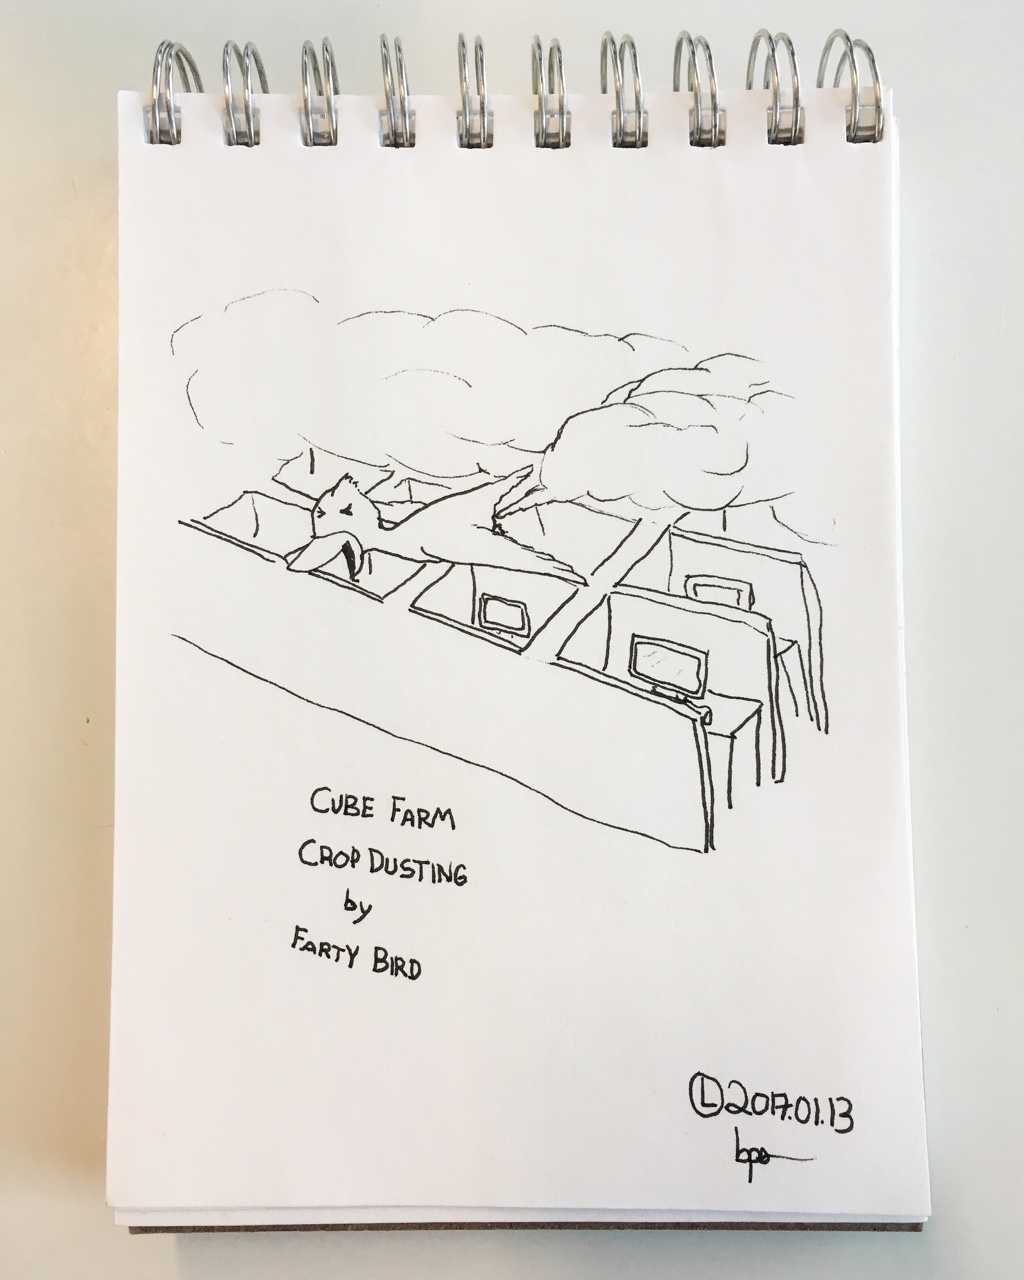 CUBE FARM
CROP DUSTING
by
FARTY BIRD
Ⓛ2017.01.13